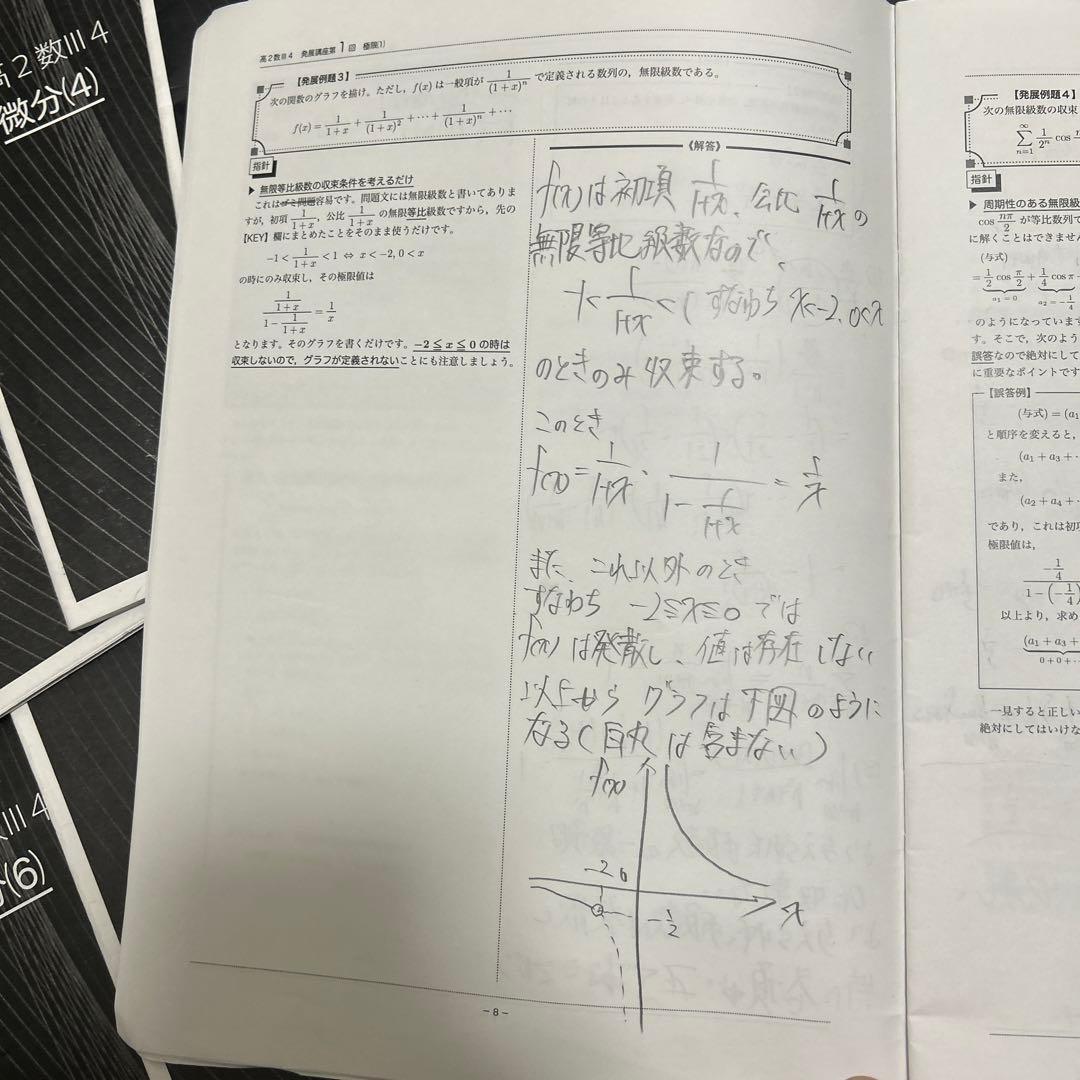 高2数III 4
微分(4)
数III 4
分(6)
高2数III 4 発展講座第1回 極限(1)
【発展例題3】
次の関数のグラフを描け。ただし，f(x) は一般項が 1/(1+x)^n で定義される数列の，無限級数である。
f(x) = 1/(1+x) + 1/(1+x)^2 + ⋯ + 1/(1+x)^n + ⋯
指針
▶ 無限等比級数の収束条件を考えるだけ
これはゴミ問題容易です。問題文には無限級数と書いてありま
すが，初項 1/(1+x)，公比 1/(1+x) の無限等比級数ですから，先の
【KEY】欄にまとめたことをそのまま使うだけです。
-1 < 1/(1+x) < 1 ⇔ x < -2, 0 < x
の時にのみ収束し，その極限値は
(1/(1+x))/(1 - 1/(1+x)) = 1/x
となります。そのグラフを書くだけです。-2 ≦ x ≦ 0 の時は
収束しないので，グラフが定義されないことにも注意しましょう。
《解答》
f(x)は初項 1/(1+x)、公比 1/(1+x) の
無限等比級数なので、
-1 < 1/(1+x) < 1 すなわち x<-2, 0<x
のときのみ収束する。
このとき
f(x) = 1/(1+x) · 1/(1 - 1/(1+x)) = 1/x
また、これ以外のとき
すなわち -2≦x≦0 では
f(x)は発散し、値は存在しない
以上から グラフは下図のように
なる(白丸は含まない)
f(x)
-2 0
-1/2
x
-8-
【発展例題4】
次の無限級数の収束
∞Σn=1 1/2^n cos n
指針
▶ 周期性のある無限級
cos nπ/2 が等比数列で
に解くことはできません
(与式)
= 1/2 cos π/2 + 1/4 cos π
a₁ = 0 a₂ = -1/4
のようになっています
す。そこで，次のよう
誤答なので絶対にして
に重要なポイントです
【誤答例】
(与式) = (a₁
と順序を変えると，
(a₁ + a₃ + ·
また，
(a₂ + a₄ + ·
であり，これは初項
極限値は，
(-1/4)/(1 - (-1/4))
以上より，求め
(a₁ + a₃ +
0 + 0 + ··
一見すると正しい
絶対にしてはいけな